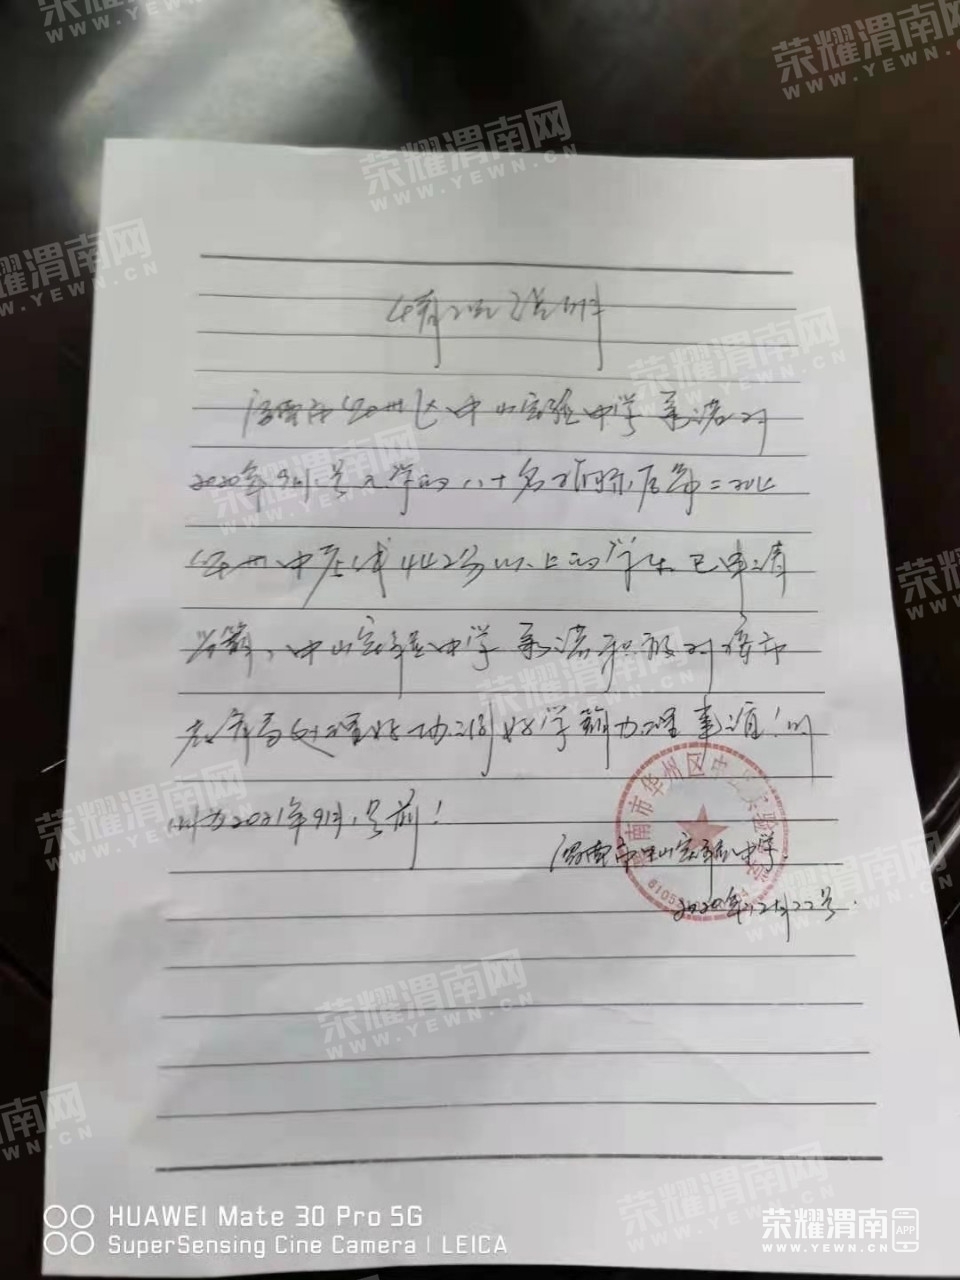 荣耀渭南网
WWW.YEWN.CN
情况说明
渭南市华州区中山实验中学承诺对
2020年9月1号入学的八十名
华州中 442分以上的学生已申请
学籍,中山实验中学承诺积极对接市
教育局处理好协调好学籍办理事项!时
间为2021年9月1号前!
渭南市华州区中山实验中学
渭南市中山实验中学
2020年12月22号.
HUAWEI Mate 30 Pro 5G
SuperSensing Cine Camera | LEICA
荣耀渭南 APP
WWW.YEWN.CN